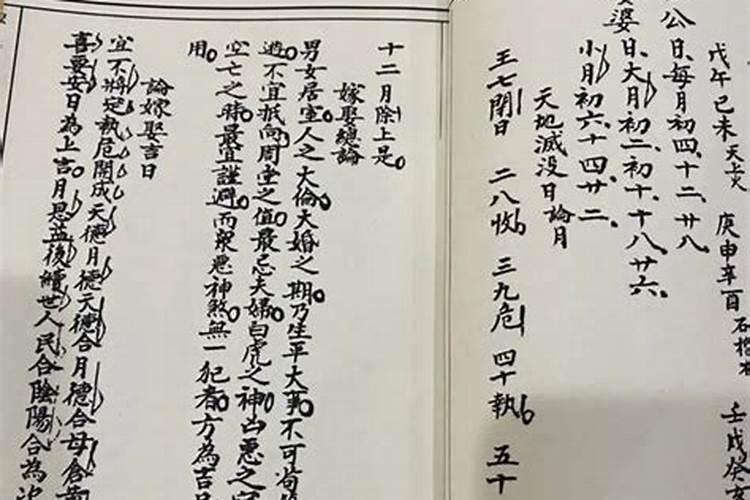 戊午己未天上火 庚申辛酉石榴木 壬戌癸
公日每月初四十二廿八
婆日大月初二初十十八廿六
小月初六十四廿二
天地滅没日論月
王七閉日 二八收 三九危 四十執 五十
十二月除上是
嫁娶總論
男女居室人之大倫大婚之期乃生平大事不可苟
避不宜抵向周堂之值最忌夫婦白虎之神凶惡之
空亡之時最宜謹避而眾惡神煞無一犯者方為吉
用
論嫁娶吉日
宜不將定執危開成天德月德天德合月德合母倉
喜要安日為上吉月恩益後續世人民合陰陽合為